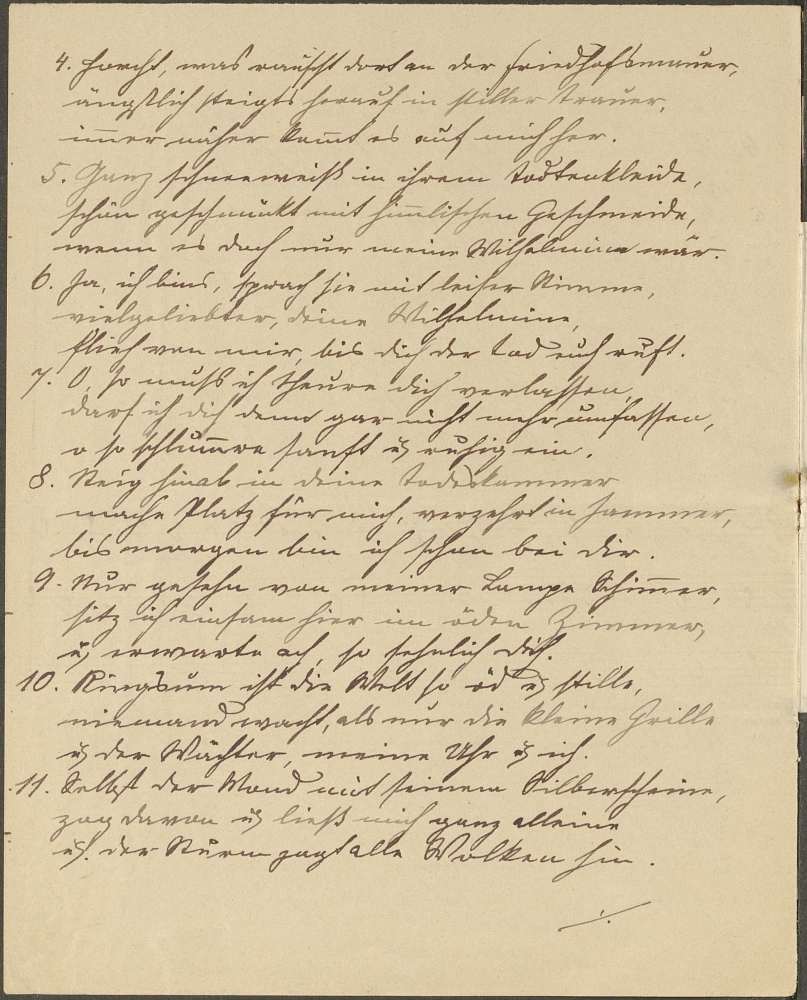 4. Horcht, was rauscht dort an der Friedhofsmauer,
ängstlich steigts herauf in stiller Trauer,
im̅er näher kom̅t es auf mich her.
5. Ganz schneeweiß in ihrem Todtenkleide,
schön geschmückt mit him̅lischen Geschmeide,
wenn es doch nur meine Wilhelmine wär.
6. Ja, ich bins, sprach sie mit leiser Stimme,
vielgeliebter, deine Wilhelmine,
flieh von mir, bis dich der Tod euch ruft.
7. O, so muß ich Theure dich verlassen,
darf ich dich denn gar nicht mehr umfassen,
o so schlum̅re sanft u. ruhig ein.
8. Steig hinab in deine Todeskammer
mache Platz für mich, verzehrt in Jammer,
bis morgen bin ich schon bei dir.
9. Nur gesehn von meiner Lampe Schim̅er,
sitz ich einsam hier im öden Zimmer,
u. erwarte ach, so sehnlich dich.
10. Ringsum ist die Welt so öd u. stille,
niemand wacht, als nur die kleine Grille
u. der Wächter, meine Uhr u. ich.
11. Selbst der Mond mit seinem Silberscheine,
zog davon u. ließ mich ganz alleine
u. der Sturm jagt alle Wolken hin.
./.